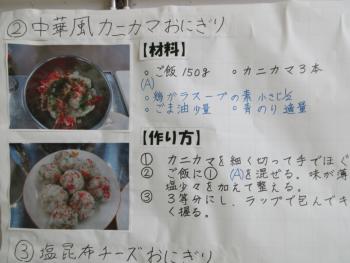 ②中華風カニカマおにぎり
【材料】
。ご飯 150g 。カニカマ3本
(A)
。鶏がらスープの素 小さじ½
。ごま油少量 。青のり適量
【作り方】
① カニカマを細く切って手でほぐ
② ご飯に① (A)を混ぜる。味が薄
塩少々を加えて整える。
③ 3等分にし、ラップで包んでき
く握る。
③塩昆布チーズおにぎり